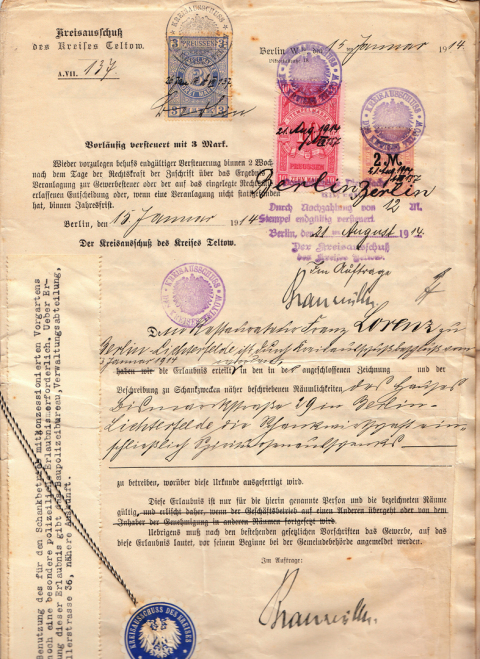 Kreisausschuß
des Kreises Teltow.
A.VII. 137.
Berlin W., den 15 Januar 1914
PREUSSEN
Berlin
Vorläufig versteuert mit 3 Mark.
Wieder vorzulegen behufs endgültiger Versteuerung binnen 2 Woch
nach dem Tage der Rechtskraft der Zuschrift über das Ergebnis
Veranlagung zur Gewerbesteuer oder der auf das eingelegte Rechts
erlassenen Entscheidung oder, wenn eine Veranlagung nicht stattgefunden
hat, binnen Jahresfrist.
Berlin, den 15 Januar 1914
Der Kreisausschuß des Kreises Teltow.
21. Aug. 1914
PREUSSEN
2. M.
Berlin Berlin
Durch Nachzahlung von 12 M.
Stempel endgültig versteuert.
Berlin, den 21 August 1914.
Der Kreisausschuß
des Kreises Teltow.
Im Auftrage
Dem Restaurateur Franz Lorenz zu
Berlin-Lichterfelde ist durch Kreisausschußbeschluß vom
Januar 1914
haben wir die Erlaubnis erteilt, in den in der angeschlossenen Zeichnung und der
Beschreibung zu Schankzwecken näher beschriebenen Räumlichkeiten des Hauses
Bismarckstraße 29 in Berlin-
Lichterfelde die Schankwirtschaft ein-
schließlich Spirituosenausschanks
zu betreiben, worüber diese Urkunde ausgefertigt wird.
Diese Erlaubnis ist nur für die hierin genannte Person und die bezeichneten Räume
gültig, und erlischt daher, wenn der Geschäftsbetrieb auf einen Anderen übergeht oder von dem
Inhaber der Genehmigung in anderen Räumen fortgesetzt wird.
Uebrigens muß nach den bestehenden gesetzlichen Vorschriften das Gewerbe, auf das
diese Erlaubnis lautet, vor seinem Beginne bei der Gemeindebehörde angemeldet werden.
Im Auftrage:
KREISAUSSCHUSS DES KREISES
Benutzung des für den Schankbetrieb mitkonzessionierten Vorgartens
noch eine besondere polizeiliche Erlaubnis erforderlich. Ueber Er-
ung dieser Erlaubnis gibt das Baupolizeibureau, Verwaltungsabteilung,
llerstrasse 36, nähere Auskunft.